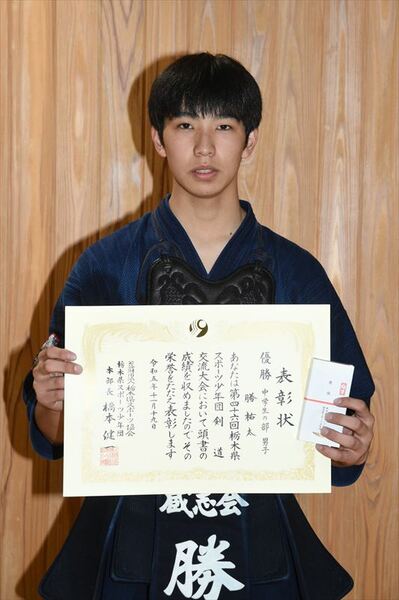 表彰状
優勝 中学生の部 男子
勝 祐太
あなたは第四十六回栃木県
スポーツ少年団 剣道
交流大会において頭書の
成績を収めましたのでその
栄誉をたたえ表彰します
令和五年十一月十九日
栃木県スポーツ少年団
本部長 橋本健一
蔵志会
勝